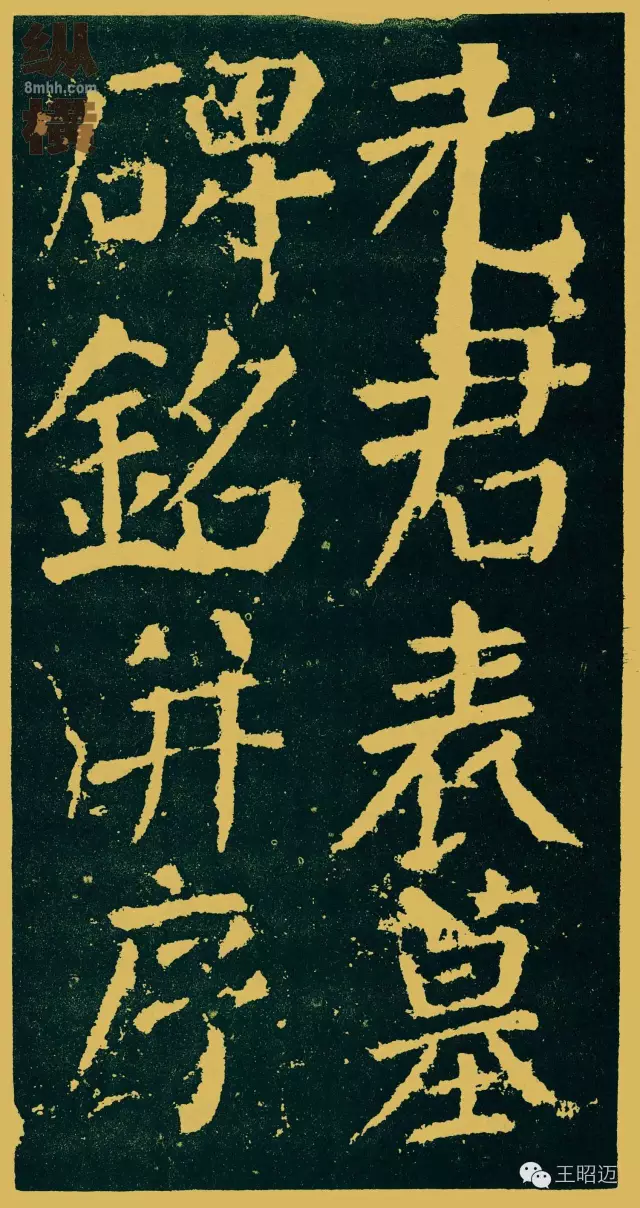 元君表墓
碑銘并序
纵横
8mhh.com
王昭迈